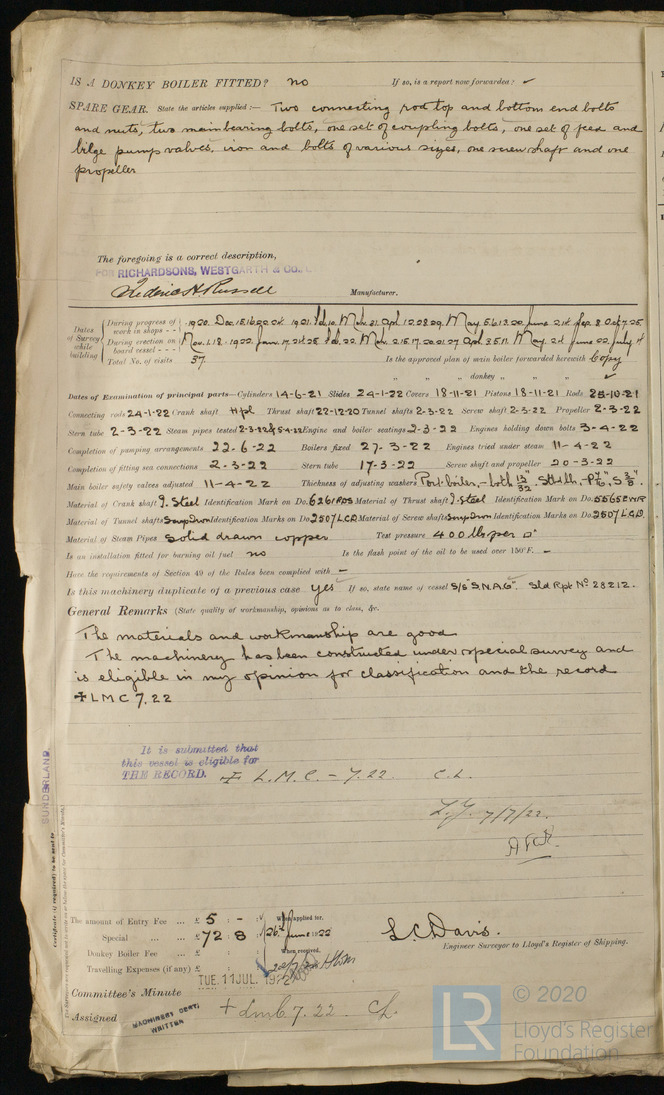 IS A DONKEY BOILER FITTED? no If so, is a report now forwarded? ✓
SPARE GEAR. State the articles supplied:— Two connecting rod top and bottom end bolts
and nuts, two main bearing bolts, one set of coupling bolts, one set of feed and
bilge pump valves, iron and bolts of various sizes, one screw shaft and one
propeller
The foregoing is a correct description,
FOR RICHARDSONS, WESTGARTH & Co.
Manufacturer.
Dates of Survey while building
During progress of work in shops - - 1920. Dec. 15.16.20.22 1921.
During erection on board vessel - - - Nov. 1.18. 1922. Jan. 17.21.25
Total No. of visits 57. Is the approved plan of main boiler forwarded herewith Copy
" " " donkey " " ✓
Dates of Examination of principal parts—Cylinders 14-6-21 Slides 24-1-22 Covers 18-11-21 Pistons 18-11-21 Rods 25-10-21
Connecting rods 24-1-22 Crank shaft Hpl Thrust shaft 22-12-20 Tunnel shafts 2-3-22 Screw shaft 2-3-22 Propeller 2-3-22
Stern tube 2-3-22 Steam pipes tested 2-3-22 & 5-4-22 Engine and boiler seatings 2-3-22 Engines holding down bolts 3-4-22
Completion of pumping arrangements 22-6-22 Boilers fixed 27-3-22 Engines tried under steam 11-4-22
Completion of fitting sea connections 2-3-22 Stern tube 17-3-22 Screw shaft and propeller 20-3-22
Main boiler safety valves adjusted 11-4-22 Thickness of adjusting washers Port boiler,- both 13/32"
Material of Crank shaft I. Steel Identification Mark on Do. 6261 RDS Material of Thrust shaft I. Steel Identification Mark on Do. 5565
Material of Tunnel shafts Scrap Iron Identification Marks on Do. 2507 LCD Material of Screw shafts Scrap Iron Identification Marks on Do. 2507 LCD
Material of Steam Pipes Solid drawn copper Test pressure 400 lbs per □"
Is an installation fitted for burning oil fuel no Is the flash point of the oil to be used over 150°F. —
Have the requirements of Section 49 of the Rules been complied with —
Is this machinery duplicate of a previous case yes If so, state name of vessel S/S "S.N.A.6". Sld Rpt No 28212.
General Remarks (State quality of workmanship, opinions as to class, &c.
The materials and workmanship are good
The machinery has been constructed under special survey and
is eligible in my opinion for classification and the record
✠ LMC 7.22
It is submitted that
this vessel is eligible for
THE RECORD. ✠ L.M.C. - 7.22. C.L.
7/7/22.
SUNDERLAND
Certificate (if required) to be sent to
The amount of Entry Fee ... £ 5 : - : When applied for,
Special ... ... £ 72 : 8 : 26th June 1922
Donkey Boiler Fee ... £ : : When received,
Travelling Expenses (if any) £ : :
L.C. Davis.
Engineer Surveyor to Lloyd's Register of Shipping.
TUE. 11 JUL. 1922
Committee's Minute
Assigned + Lmc 7.22. CL.
MACHINERY CERT.
WRITTEN
LR
© 2020
Lloyd's Register
Foundation